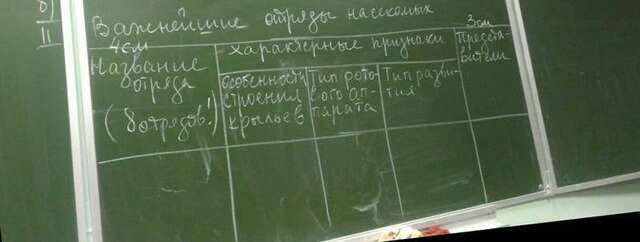 б)
II
Важнейшие отряды насекомых
4см
3см
Название
отряда
(8 отрядов!)
Характерные признаки
Предста-
вители
Особенность
строения
крыльев
Тип рото-
вого ап-
парата
Тип разви-
тия